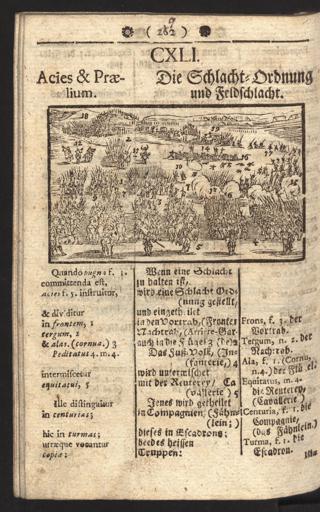 ( 282 )
CXLI.
Acies & Præ-
lium.
Die Schlacht-Ordnung
und Feldschlacht.
Quando pugna f. 1.
committenda est,
acies f. 5. instruitur,
& dividitur
in frontem, 1
tergum, 2
& alas. (cornua.) 3
Peditatus 4. m. 4.
intermiscetur
equitatui, 5
Ille distinguitur
in centurias;
hic in turmas;
utræque vocantur
copiæ;
Wenn eine Schlacht
zu halten ist,
wird eine Schlacht Ord-
(nung gestellt,
und eingetheilt
in den Vortrab, (Fronte)
Nachtrab, (Arriere-Gar-
auch in die Flügel 3 (de) 2
Das Fuß-Volk, (In-
(fanterie,) 4
wird untermischet
mit der Reuterey, (Ca
(vallerie) 5
Jenes wird getheilet
in Compagnien, (Fähn-
(lein;)
dieses in Escadrons;
beedes heissen
Truppen:
Frons, f. 3. der
Vortrab.
Tergum, n. 2. der
Nachtrab.
Ala, f. 1. (Cornu,
n. 4.) der Flügel.
Equitatus, m. 4.
die Reuterey,
(Cavallerie)
Centuria, f. 1. die
Compagnie,
(das Fähnlein.)
Turma, f. 1. die
Escadron.